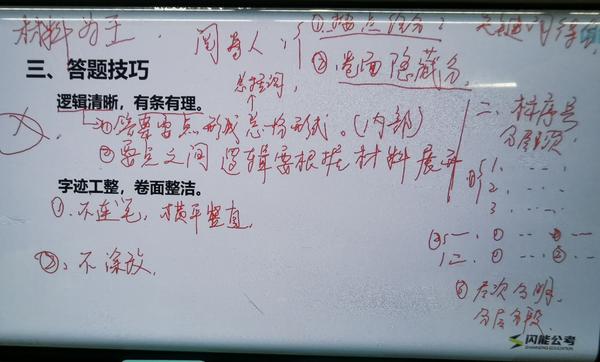 材料为王
阅卷人：{①按点给分：关键词得分
②卷面隐藏分
三、答题技巧
总括词
逻辑清晰，有条有理。
①答案要点形成总分形式。(内部)
②要点之间逻辑要根据材料展开
字迹工整，卷面整洁。
①、不连笔，横平竖直
②、不涂改，
二、标序号
分层次
1、
2、
3、
一、① ②
二、① ②
③层次分明，
分层分段
闪能公考
SHANNENG EDUCATION